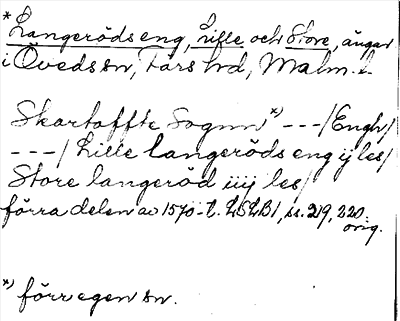 * Langerödseng, Lille och Store, ängar
i Öveds sn, Färs hd, Malm. l.
Skartoffte Sognn *) ---/Engh/
---/ Lille langeröds eng ij les/
Store langeröd iiij les/
förra delen av 1570-t. LSLB1, ss. 219, 220
orig.
*) förr egen sn.